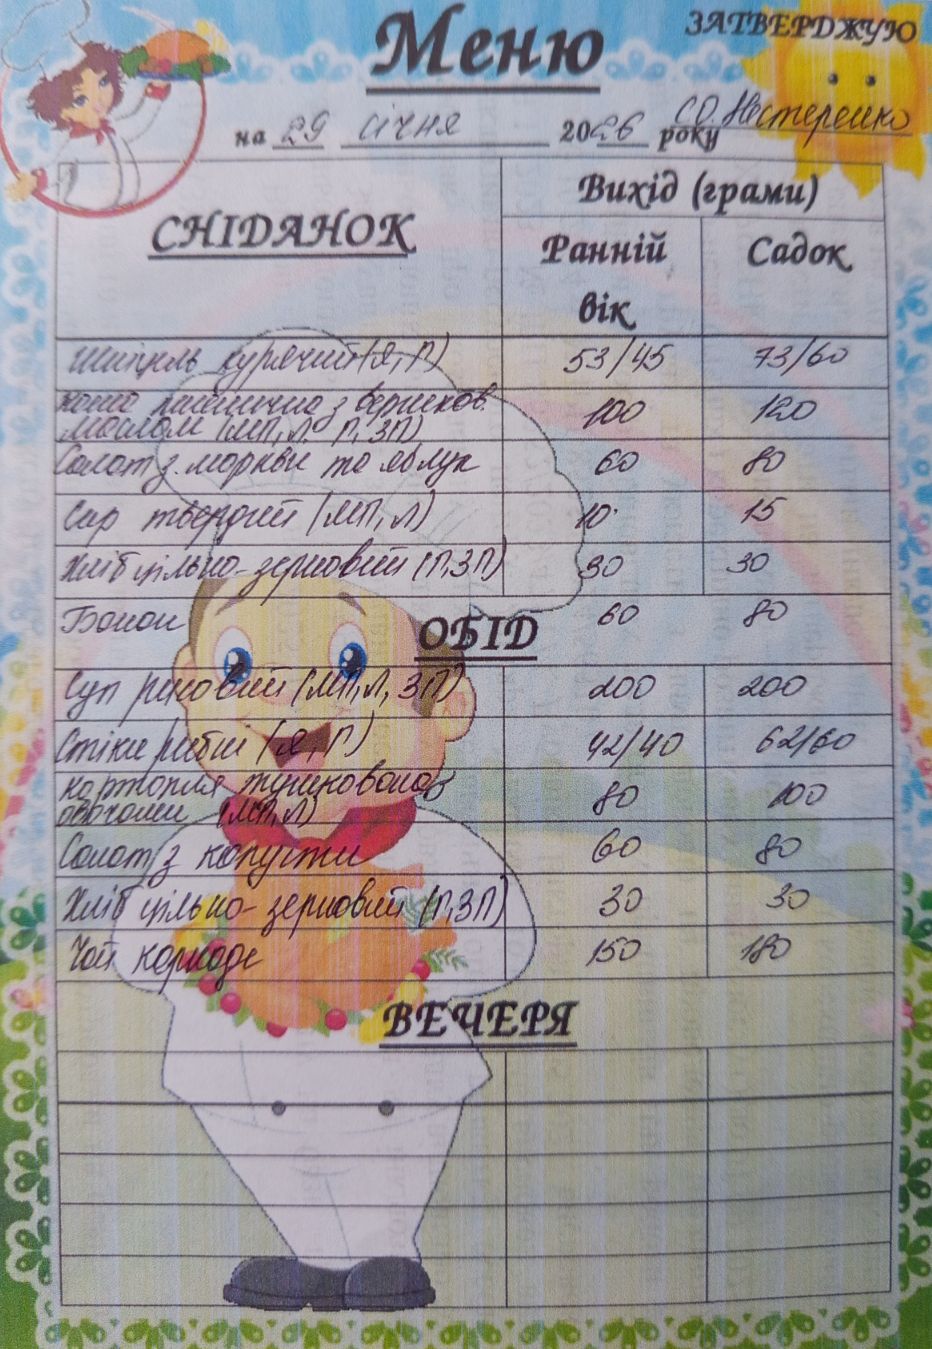 Меню
ЗАТВЕРДЖУЮ
на 29 січня 2026 року
С.О. Нестеренко
СНІДАНОК
Вихід (грами)
Ранній вік
Садок
Шніцель курячий (Я, Г) 53/45 73/60
каша пшенична з вершков.
маслом (МП, Л, Г, ЗП) 100 120
Салат з моркви та яблук 60 80
Сир твердий (МП, Л) 10 15
Хліб цільно-зерновий (Г, ЗП) 30 30
Банан 60 80
ОБІД
Суп рисовий (МП, Л, ЗП) 200 200
Стіки рибні (Я, Г) 42/40 62/60
картопля тушкована з
овочами (МП, Л) 80 100
Салат з капусти 60 80
Хліб цільно-зерновий (Г, ЗП) 30 30
Чай каркаде 150 180
ВЕЧЕРЯ